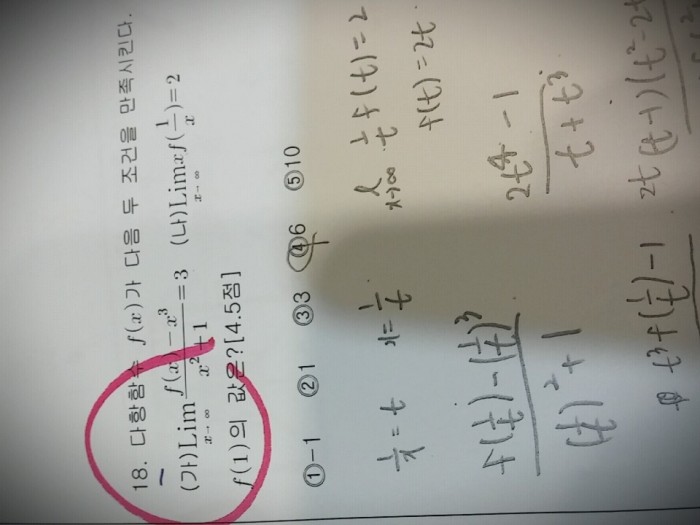 18. 다항함수 f(x)가 다음 두 조건을 만족시킨다.
(가) Lim x→∞ (f(x)-x³)/(x²+1) = 3 (나) Lim x→∞ xf(1/x) = 2
f(1)의 값은? [4.5점]
①-1 ②1 ③3 ④6 ⑤10
1/x = t x = 1/t
l x→∞ 1/t f(t) = 2
f(t) = 2t
(f(1/t) - (1/t)³)/((1/t)² + 1)
(2t⁴ - 1)/(t + t³)
t³f(1/t) - 1
2t(t-1)(t²-2t